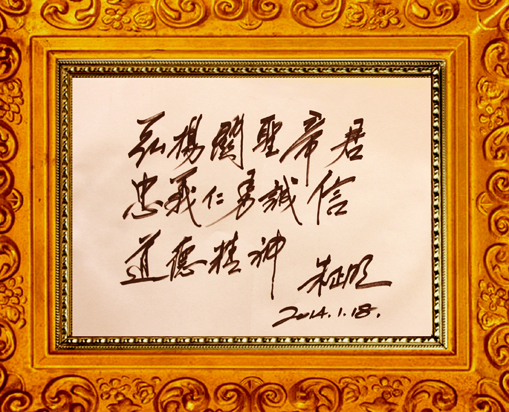 弘揚關聖帝君
忠義仁勇誠信
道德精神 朱正明
2014.1.18.